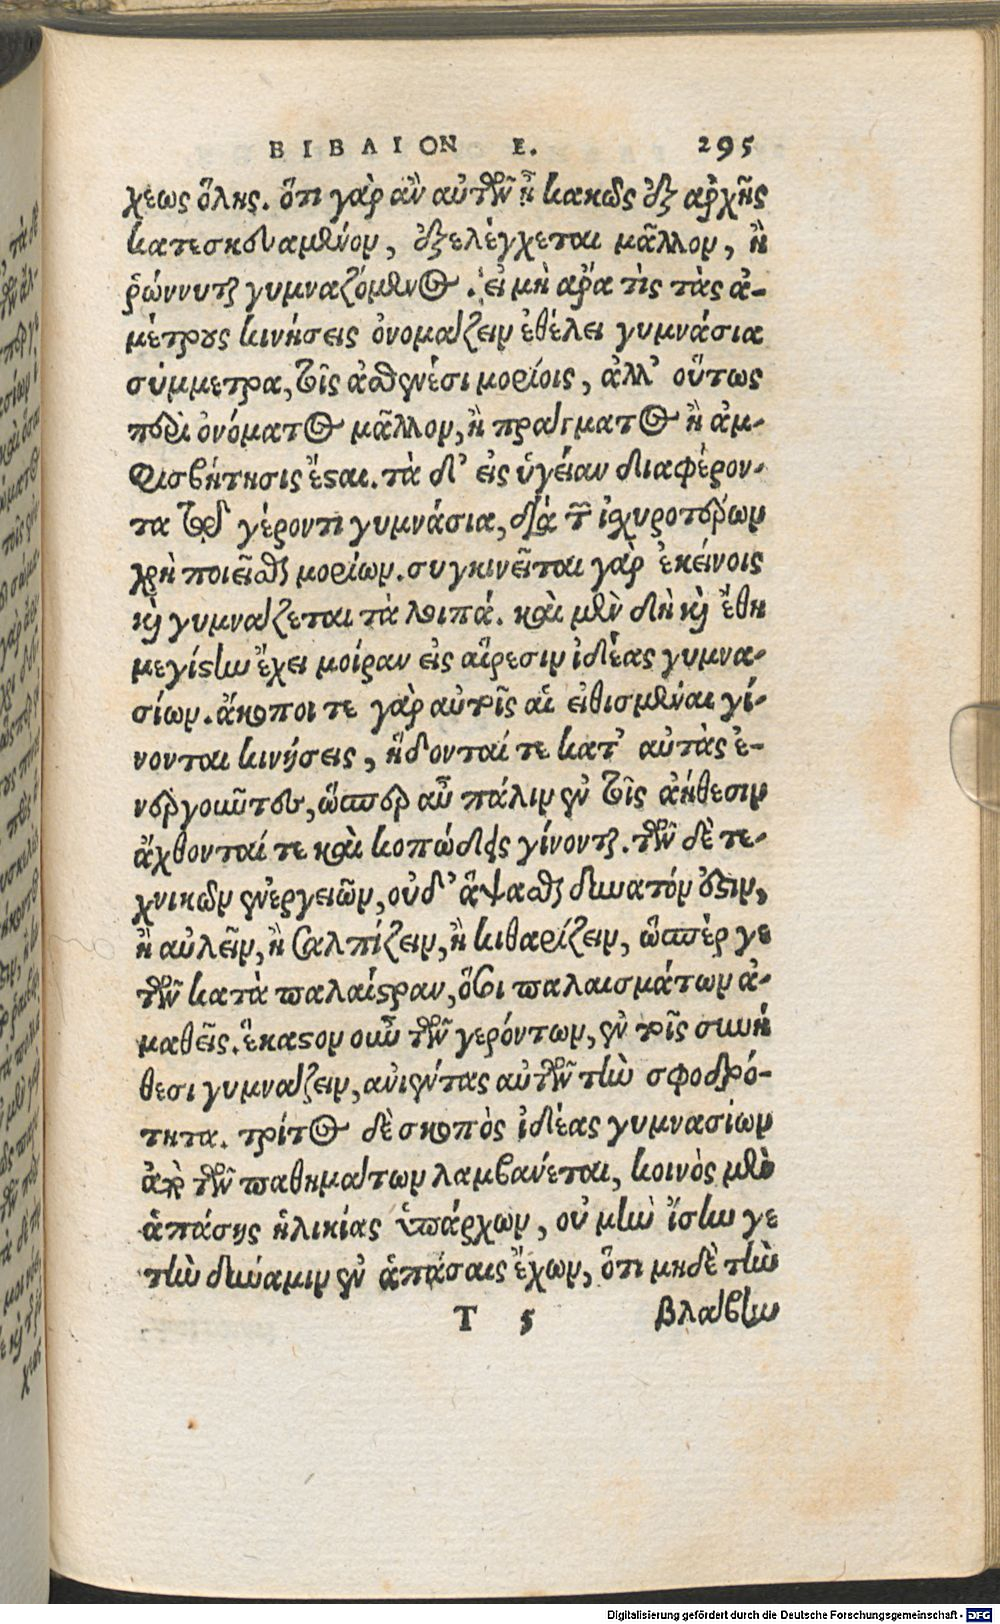 ΒΙΒΛΙΟΝ Ε. 295
χεως ὅλης. ὅτι γὰρ ἂν αὐτῶν ᾖ κακῶς ἐξ ἀρχῆς
κατεσκευασμένον, ἐξελέγχεται μᾶλλον, ἢ
ῥώννυται γυμναζόμενον. εἰ μὴ ἄρα τὶς τὰς ἀ-
μέτρους κινήσεις ὀνομάζειν ἐθέλει γυμνάσια
σύμμετρα, τοῖς ἀσθενέσι μορίοις, ἀλλ' οὕτως
περὶ ὀνόματος μᾶλλον, ἢ πράγματος ἢ ἀμ-
φισβήτησις ἔσται. τὰ δ' εἰς ὑγείαν διαφέρον-
τα τῷ γέροντι γυμνάσια, διὰ τῶν ἰσχυροτέρων
χρὴ ποιεῖσθαι μορίων. συγκινεῖται γὰρ ἐκείνοις
καὶ γυμνάζεται τὰ λοιπά. καὶ μὲν δὴ καὶ ἔθη
μεγίστην ἔχει μοίραν εἰς αἵρεσιν ἰδέας γυμνα-
σίων. ἄκοποι τε γὰρ αὐτοῖς αἱ εἰθισμέναι γί-
νονται κινήσεις, ἥδονταί τε κατ' αὐτὰς ἐ-
νεργοῦντες, ὥσπερ αὖ πάλιν ἐν τοῖς ἀήθεσιν
ἄχθονταί τε καὶ κοπώδεις γίνονται. τῶν δὲ τε-
χνικῶν ἐνεργειῶν, οὐδ' ἅψασθαι δυνατόν ἐστιν,
ἢ αὐλεῖν, ἢ σαλπίζειν, ἢ κιθαρίζειν, ὥσπέρ γε
τῶν κατὰ παλαίστραν, ὅσοι παλαισμάτων ἀ-
μαθεῖς. ἕκαστον οὖν τῶν γερόντων, ἐν τοῖς συνή
θεσι γυμνάζειν, ἀνιέντας αὐτῶν τὴν σφοδρό-
τητα. τρίτος δὲ σκοπὸς ἰδέας γυμνασίων
ἀπὸ τῶν παθημάτων λαμβανέται, κοινὸς μὲν
ἁπάσης ἡλικίας ὑπάρχων, οὐ μὴν ἴσην γε
τὴν δύναμιν ἐν ἁπάσαις ἔχων, ὅτι μηδὲ τὴν
T 5 βλάβην